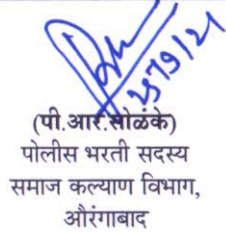 25/9/21
(पी.आर.सोळंके)
पोलीस भरती सदस्य
समाज कल्याण विभाग,
औरंगाबाद